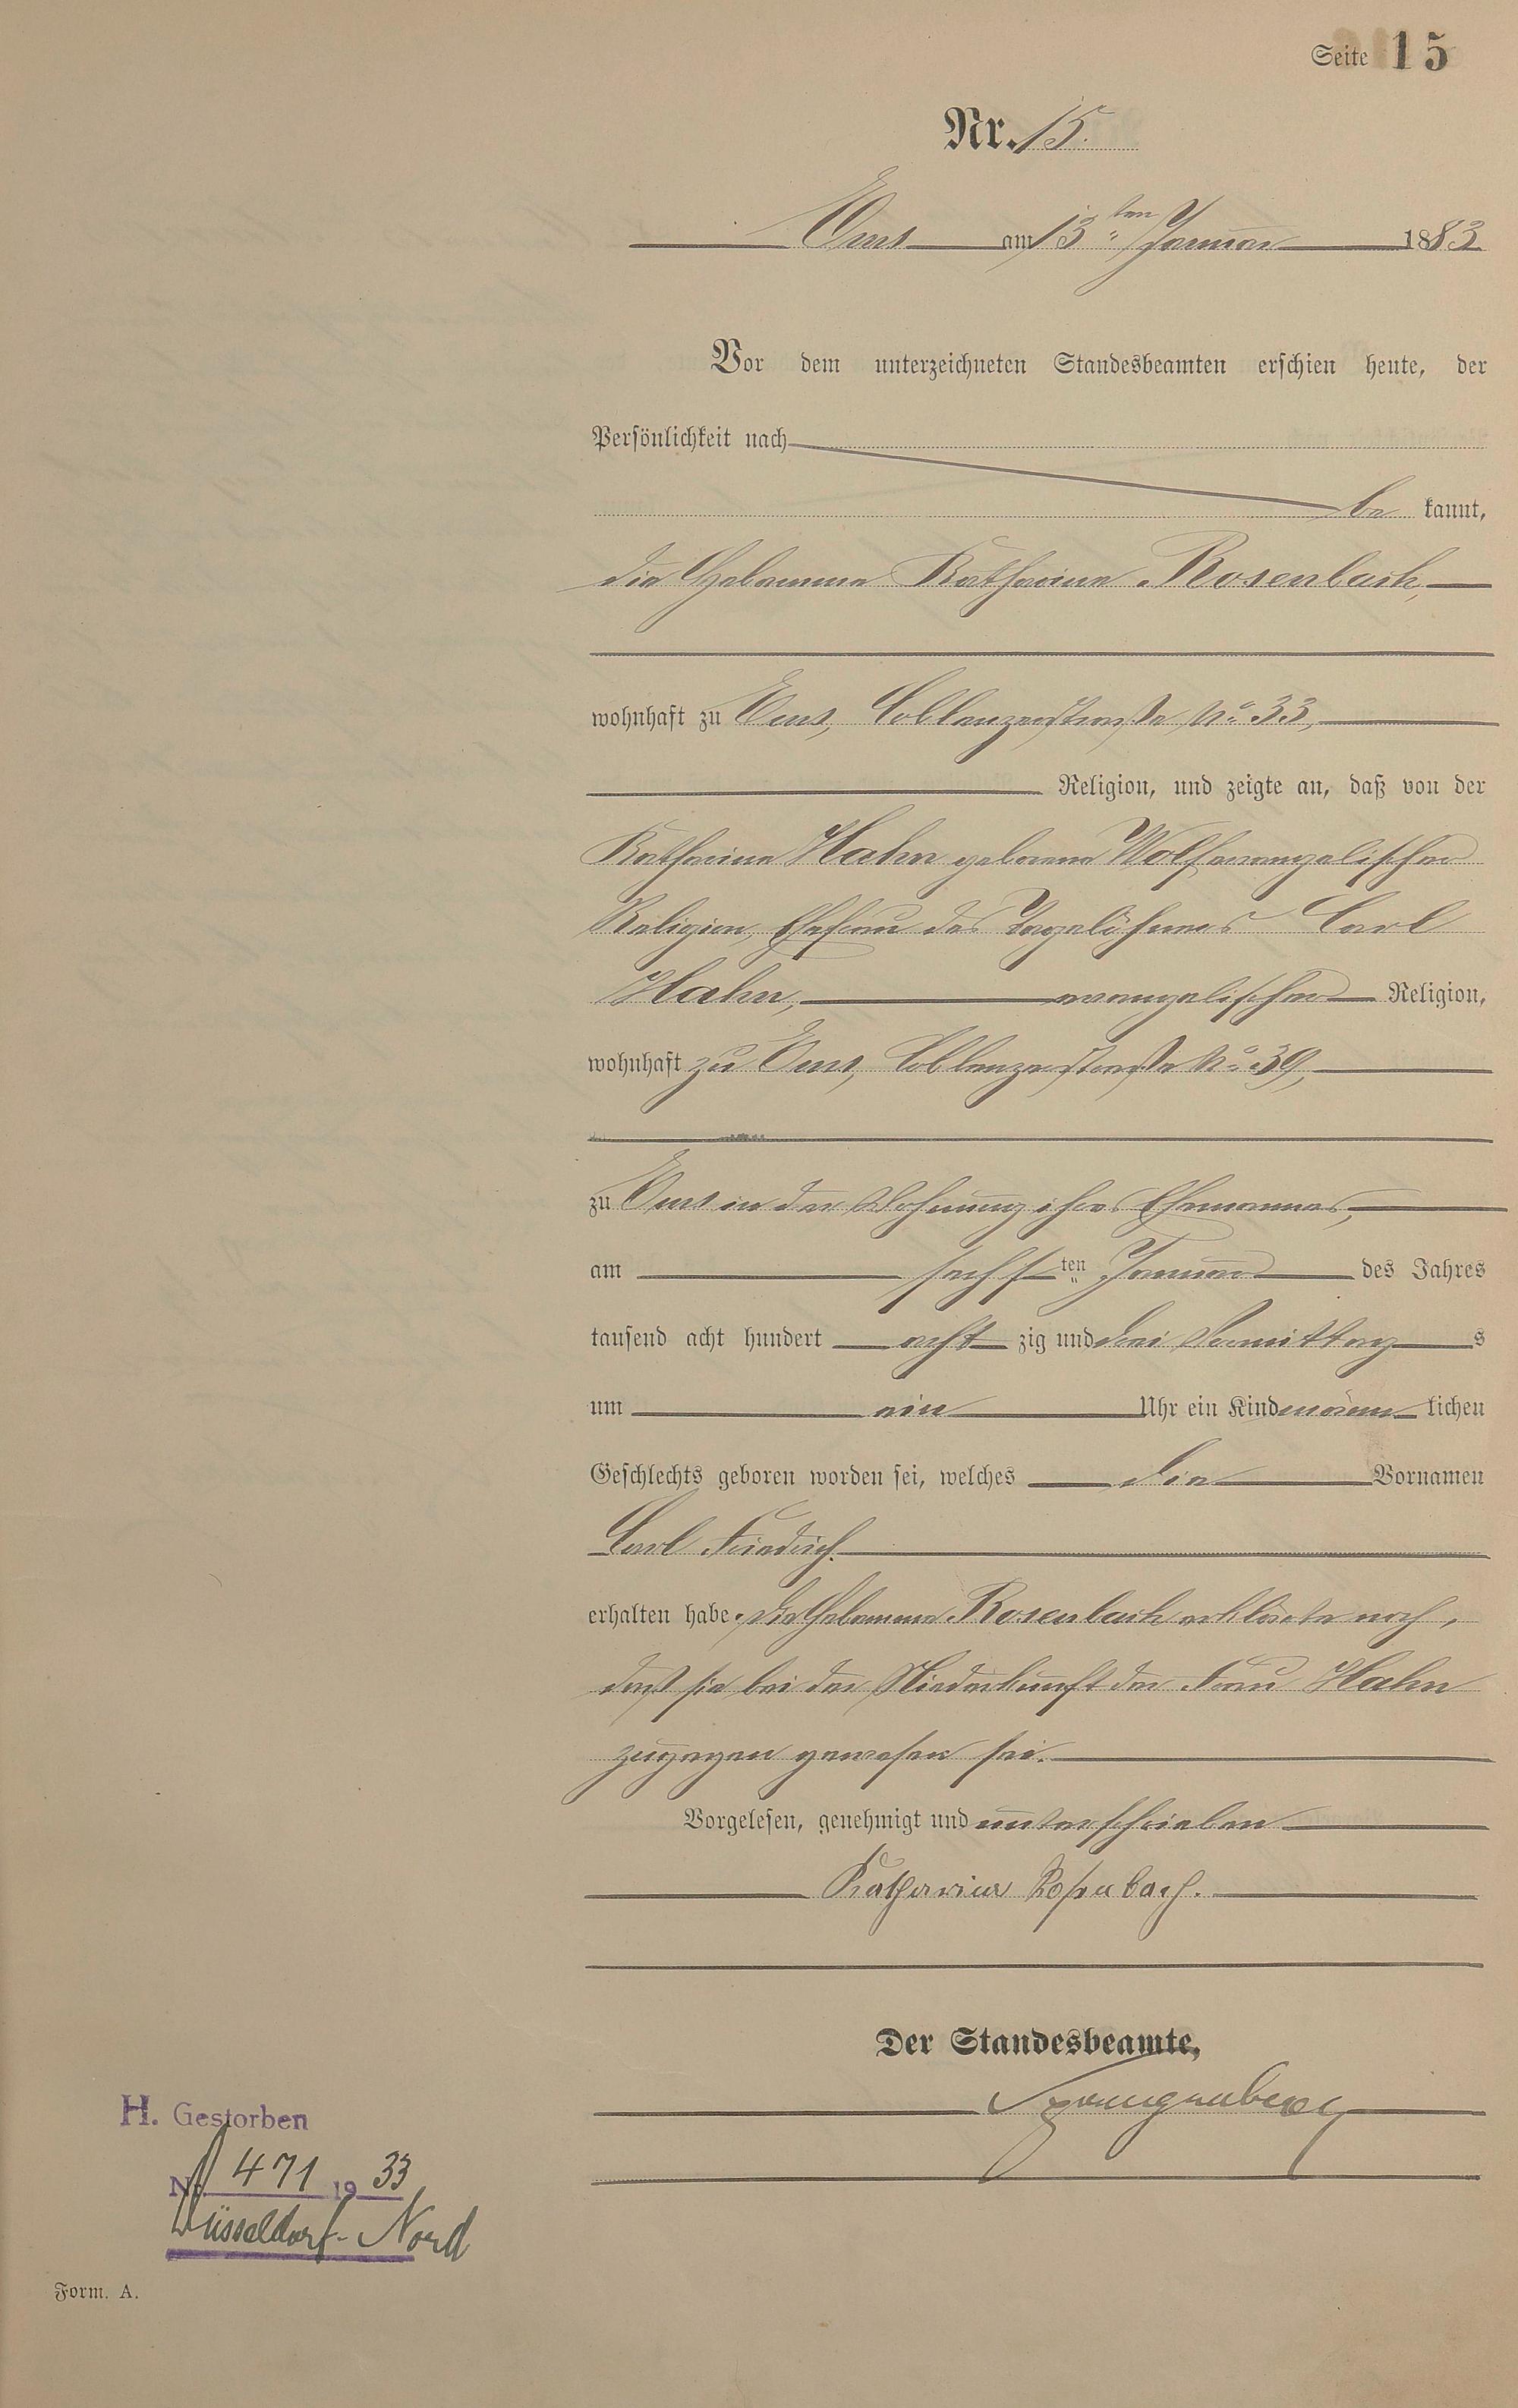 Seite 15
Nr. 15.
Ems am 13ten Januar 1883
Vor dem unterzeichneten Standesbeamten erschien heute, der
Persönlichkeit nach
be kannt,
die Hebamme Katharina Rosenbach,
wohnhaft zu Ems, Coblenzerstraße No 33,
Religion, und zeigte an, daß von der
Katharina Hahn geborene Wolf evangelischer
Religion, Ehefrau des Tagelöhners Carl
Hahn, evangelischer Religion,
wohnhaft zu Ems, Coblenzerstraße No 39,
zu Ems in der Wohnung ihres Ehemannes,
am sechsten Januar des Jahres
tausend acht hundert acht zig und drei Vormittags
um ein Uhr ein Kind männlichen
Geschlechts geboren worden sei, welches die Vornamen
Carl Friedrich.
erhalten habe. Die Hebamme Rosenbach erklärte noch,
daß sie bei der Niederkunft der Frau Hahn
zugegen gewesen sei.
Vorgelesen, genehmigt und unterschrieben
Katharina Rosenbach.
Der Standesbeamte,
Spangenberg
H. Gestorben
Nr. 471 1933
Düsseldorf-Nord
Form. A.